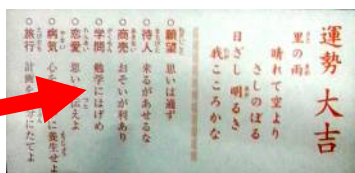 運勢 大吉
里の雨
晴れて空より
さしのぼる
日ざし明るき
我こころかな
○願望 思いは通ず
○待人 来るがあせるな
○商売 おそいが利あり
○学問 勉学にはげめ
○恋愛 思い 伝えよ
○病気 心を 養生せよ
○旅行 計画を にたてよ